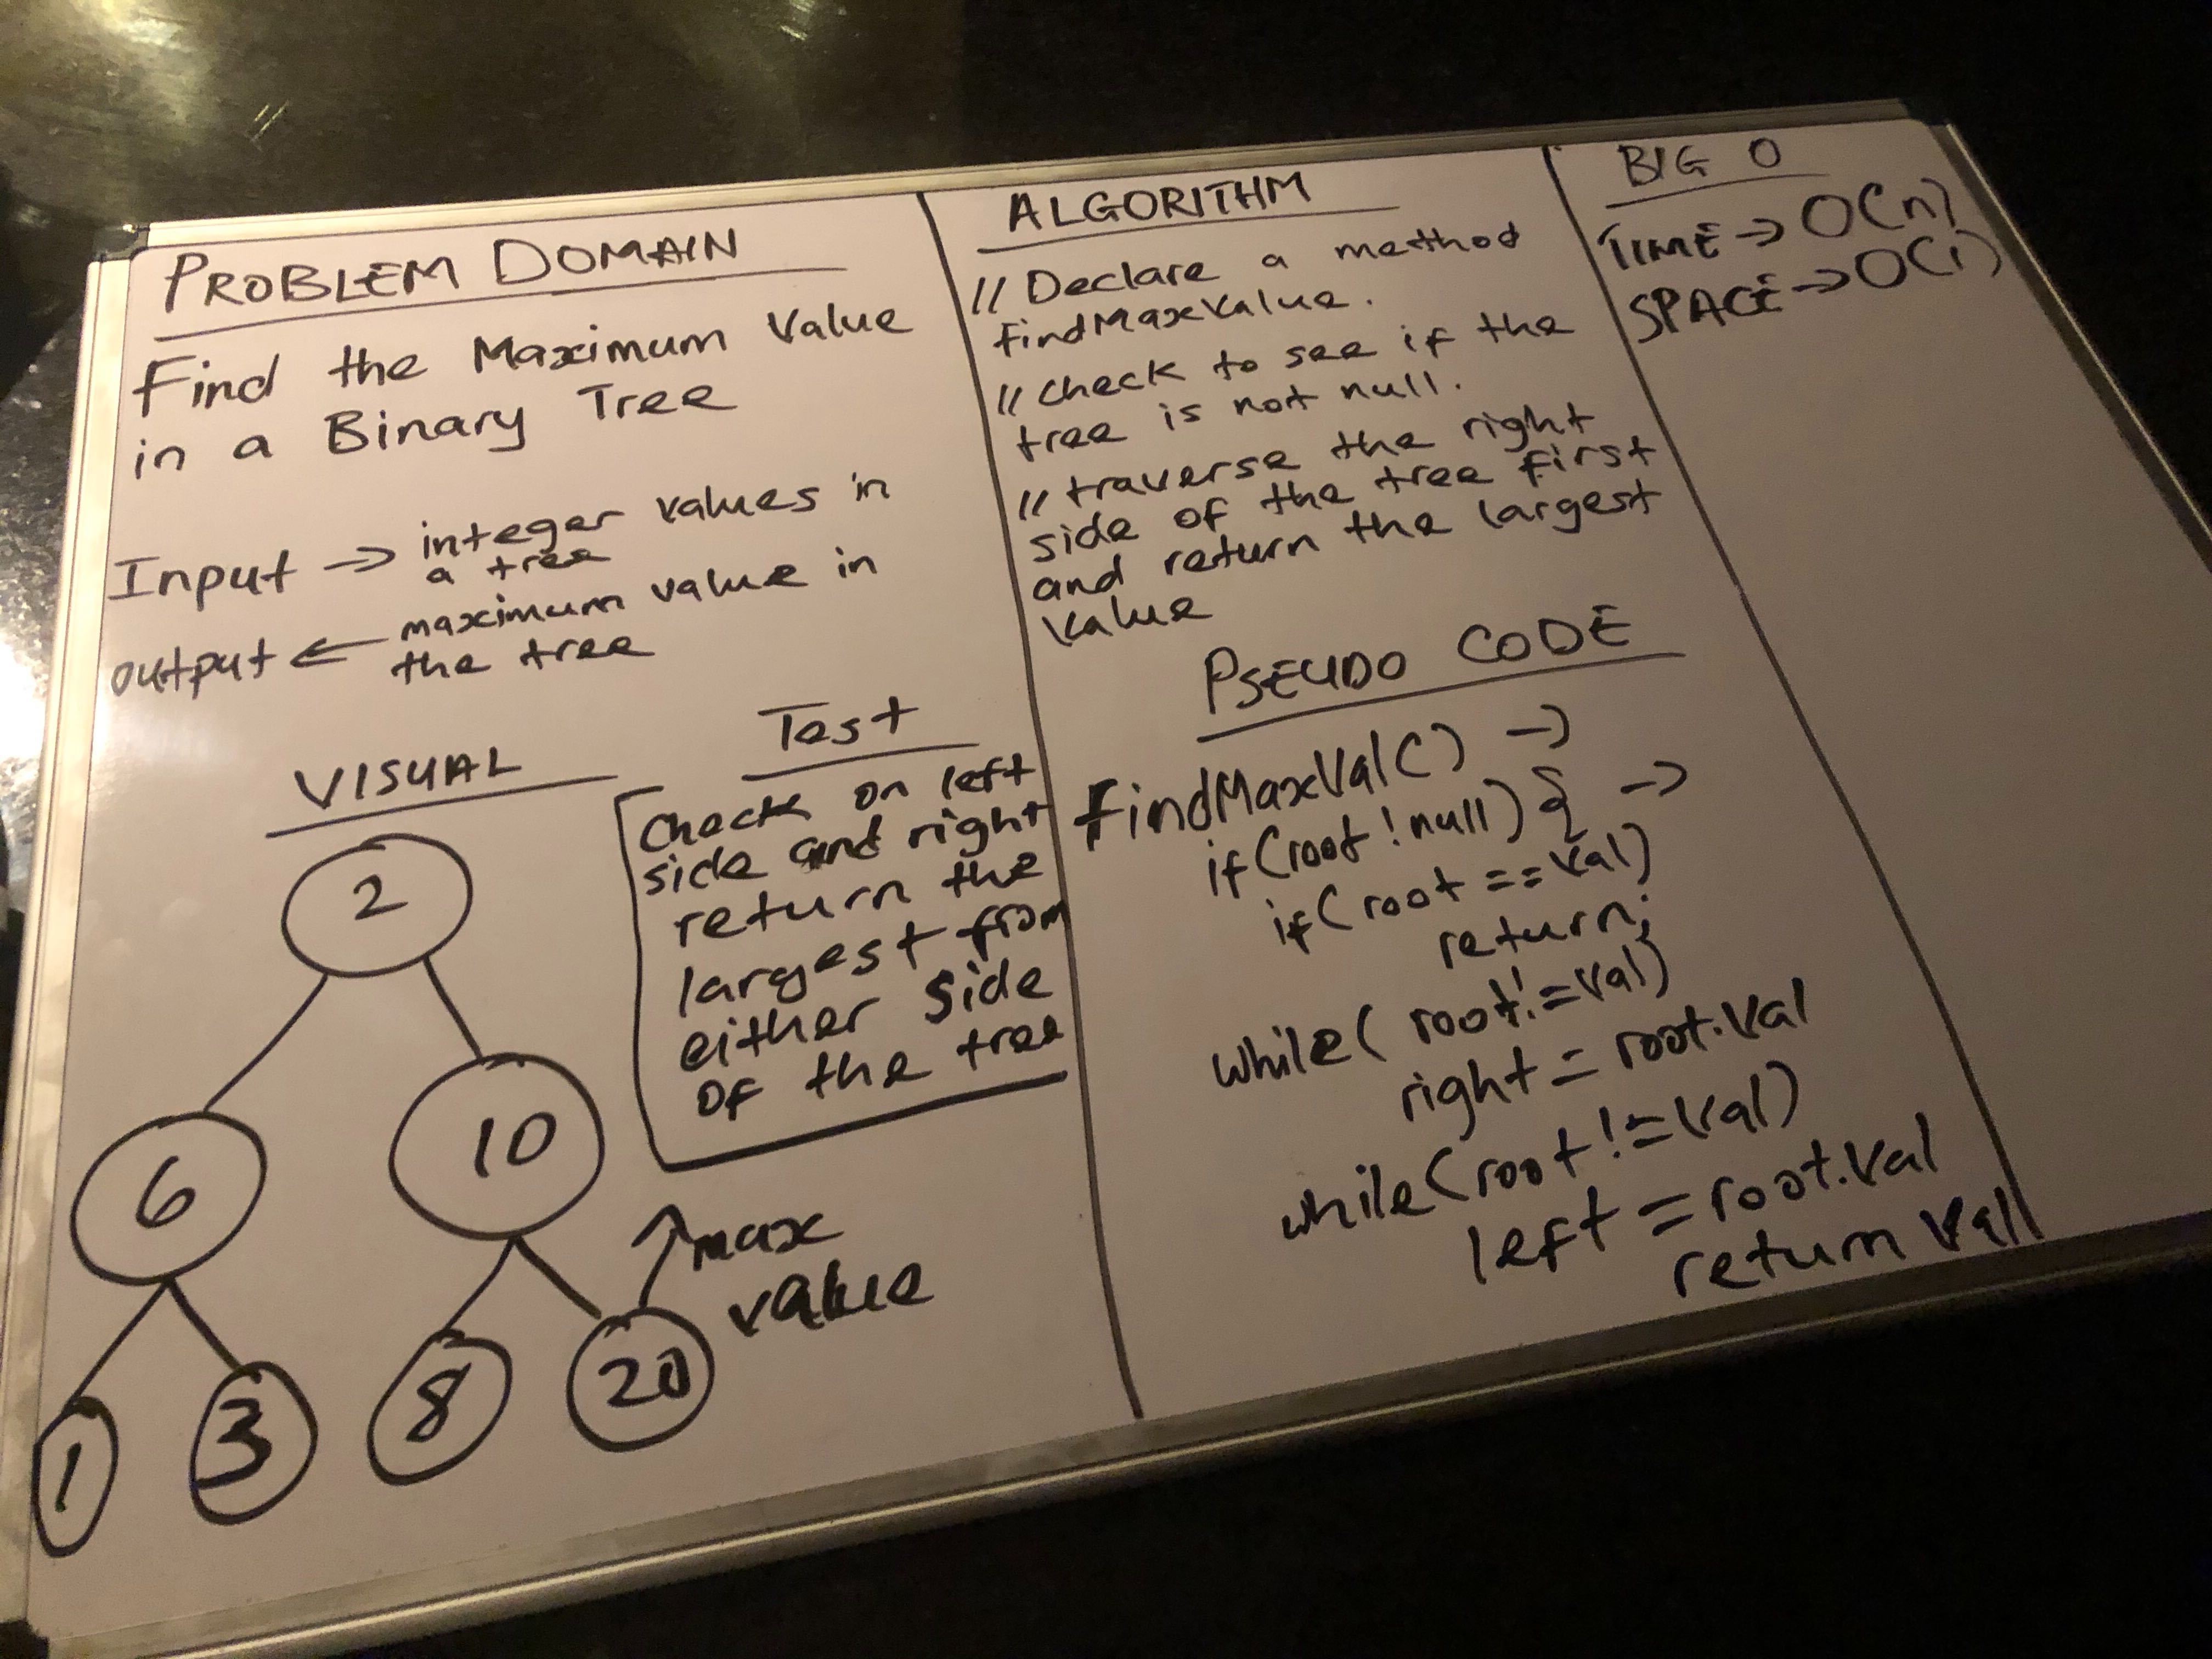 PROBLEM DOMAIN
Find the Maximum Value
in a Binary Tree
Input → integer values in
a tree
output ← maximum value in
the tree
VISUAL
2
6
10
1
3
8
20
max
value
Test
Check on left
side and right
return the
largest from
either side
of the tree
ALGORITHM
// Declare a method
findMaxValue.
// check to see if the
tree is not null.
// traverse the right
side of the tree first
and return the largest
value
PSEUDO CODE
findMaxVal() →
if(root !null) { →
if(root == val)
return;
while( root!=val)
right = root.val
while(root!=val)
left = root.val
return val
BIG O
TIME → O(n)
SPACE → O(1)